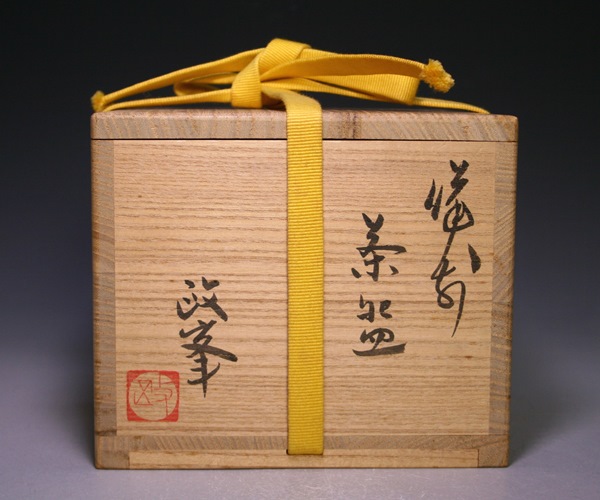 備前
茶盌
政峯